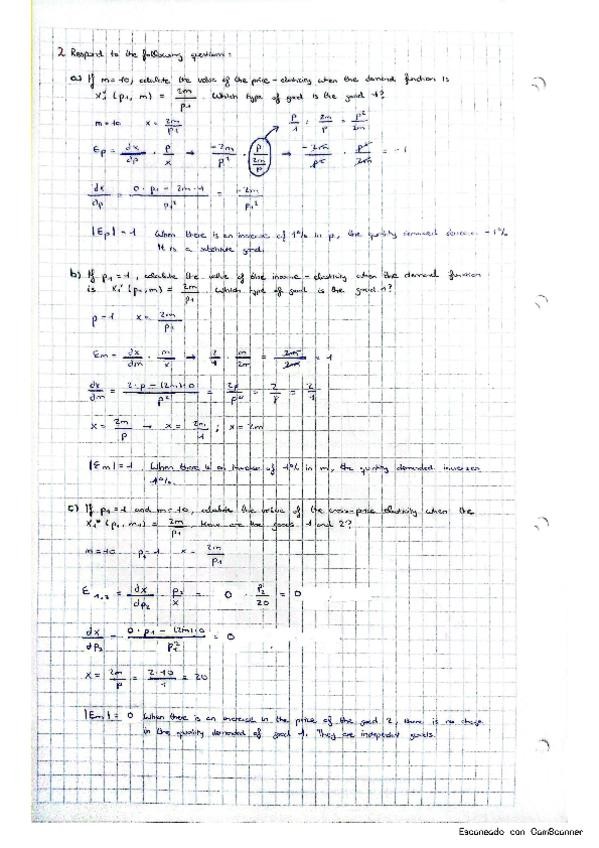 2 Respond to the following questions:
a) If m=10, calculate the value of the price-elasticity when the demand function is
x₁* (p₁, m) = 2m/p₁. Which type of good is the good 1?
m=10 x = 2m/p₁ p/1 : 2m/p = p²/2m
Ep = dx/dp · p/x → -2m/p² · p/(2m/p) → -2m/p² · p²/2m = -1
dx/dp = (0·p₁ - 2m·1)/p₁² = -2m/p₁²
|Ep| = 1 When there is an increase of 1% in p, the quantity demanded -1%
It is a good.
b) If p₁=1, calculate the value of the income-elasticity when the demand function
is x₁* (p₁,m) = 2m/p₁. Which type of good is the good 1?
p=1 x = 2m/p₁
Em = dx/dm · m/x → 2/1 · m/2m = 2m/2m = 1
dx/dm = (2·p - (2m)·0)/p² = 2p/p² = 2/p = 2/1
x = 2m/p → x = 2m/1 ; x = 2m
|Em| = 1. When there is of 1% in m, the quantity demanded increases
1%.
c) If p₁=1 and m=10, calculate the value of the cross-price elasticity when the
x₁* (p₁, m) = 2m/p₁. How are the goods 1 and 2?
m=10 p₁=1 x = 2m/p₁
E₁,₂ = dx/dp₂ · p₂/x = 0 · p₂/20 = 0
dx/dp₂ = (0·p₁ - (2m)·0)/p₁² = 0
x = 2m/p = 2·10/1 = 20
|Em| = 0 When there is an increase in the price of the good 2, there is no change
in the quantity demanded of good 1. They are goods.
Escaneado con CamScanner